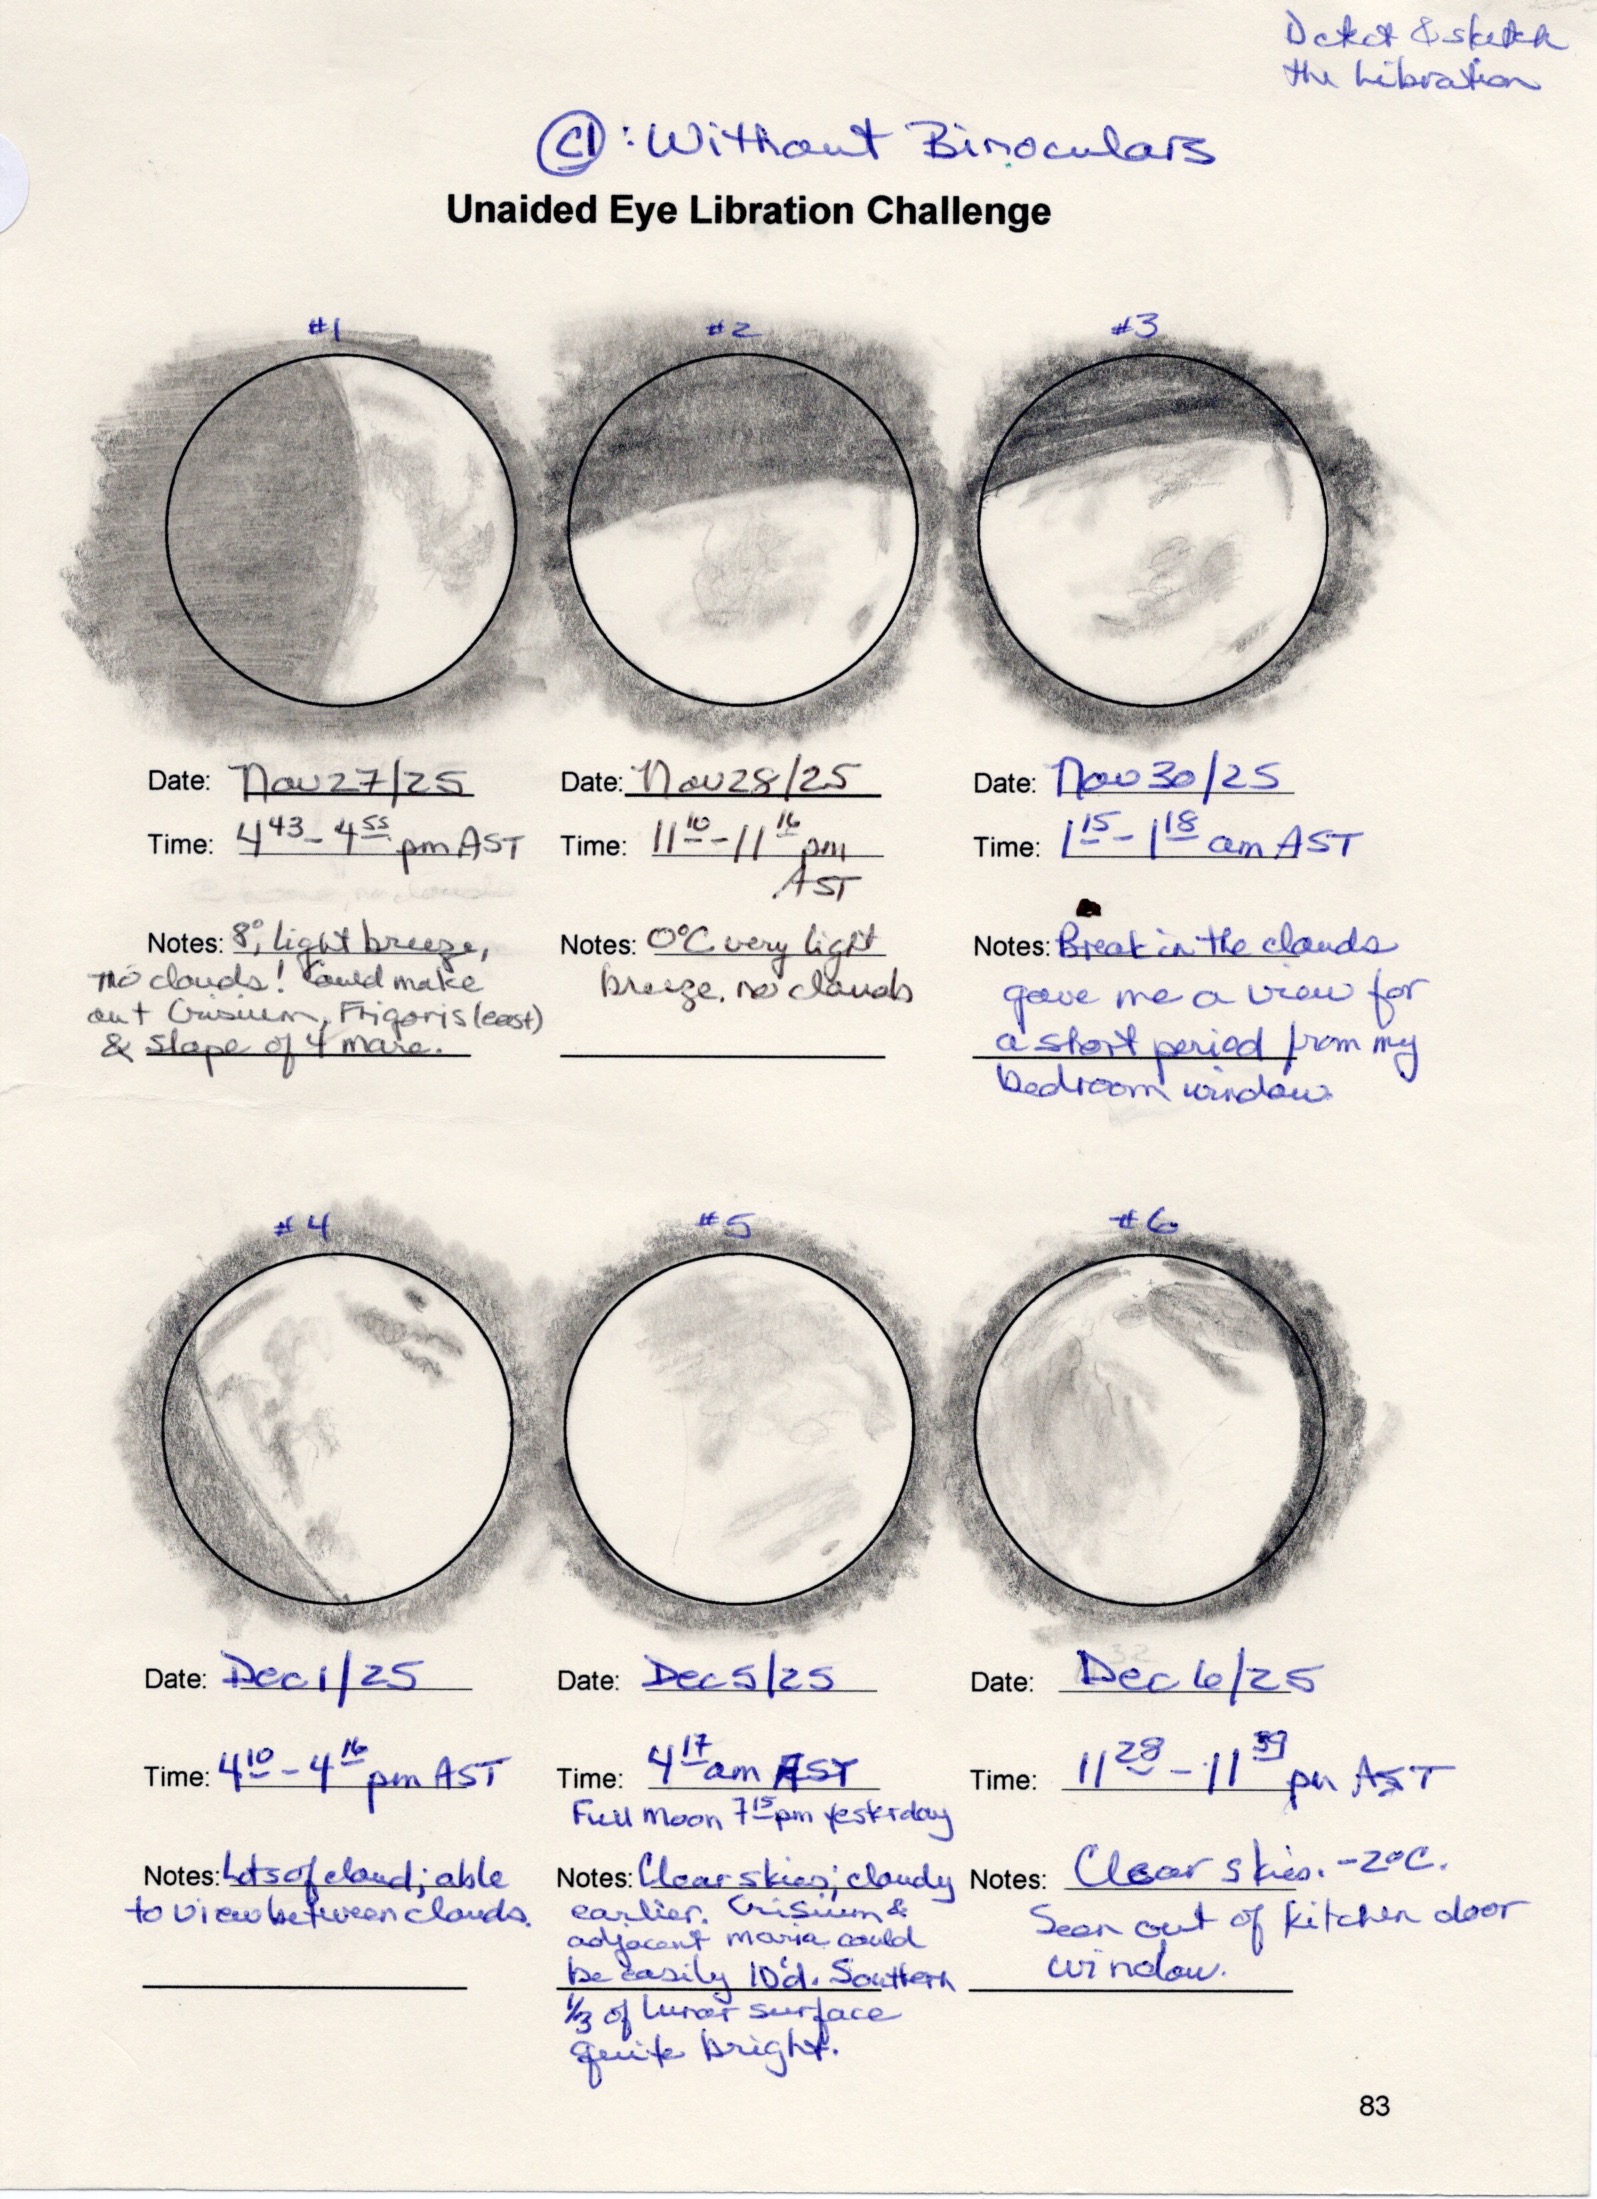 Detect & sketch
the Libration
C1: Without Binoculars
Unaided Eye Libration Challenge
#1
#2
#3
Date: Nov 27/25
Date: Nov 28/25
Date: Nov 30/25
Time: 4 43 - 4 55 pm AST
Time: 11 10 - 11 16 pm
AST
Time: 1 15 - 1 18 am AST
Notes: 8°, light breeze,
no clouds! Could make
out Crisium, Frigoris (east)
& slope of 4 mare.
Notes: 0°C very light
breeze, no clouds
Notes: Break in the clouds
gave me a view for
a short period from my
bedroom window.
#4
#5
#6
Date: Dec 1/25
Date: Dec 5/25
Date: Dec 6/25
Time: 4 10 - 4 16 pm AST
Time: 4 17 am AST
Full Moon 7 15 pm yesterday
Time: 11 28 - 11 39 pm AST
Notes: Lots of cloud; able
to view between clouds.
Notes: Clear skies; cloudy
earlier. Crisium &
adjacent maria could
be easily ID'd. Southern
1/3 of lunar surface
quite bright.
Notes: Clear skies. -2°C.
Seen out of kitchen door
window.
83